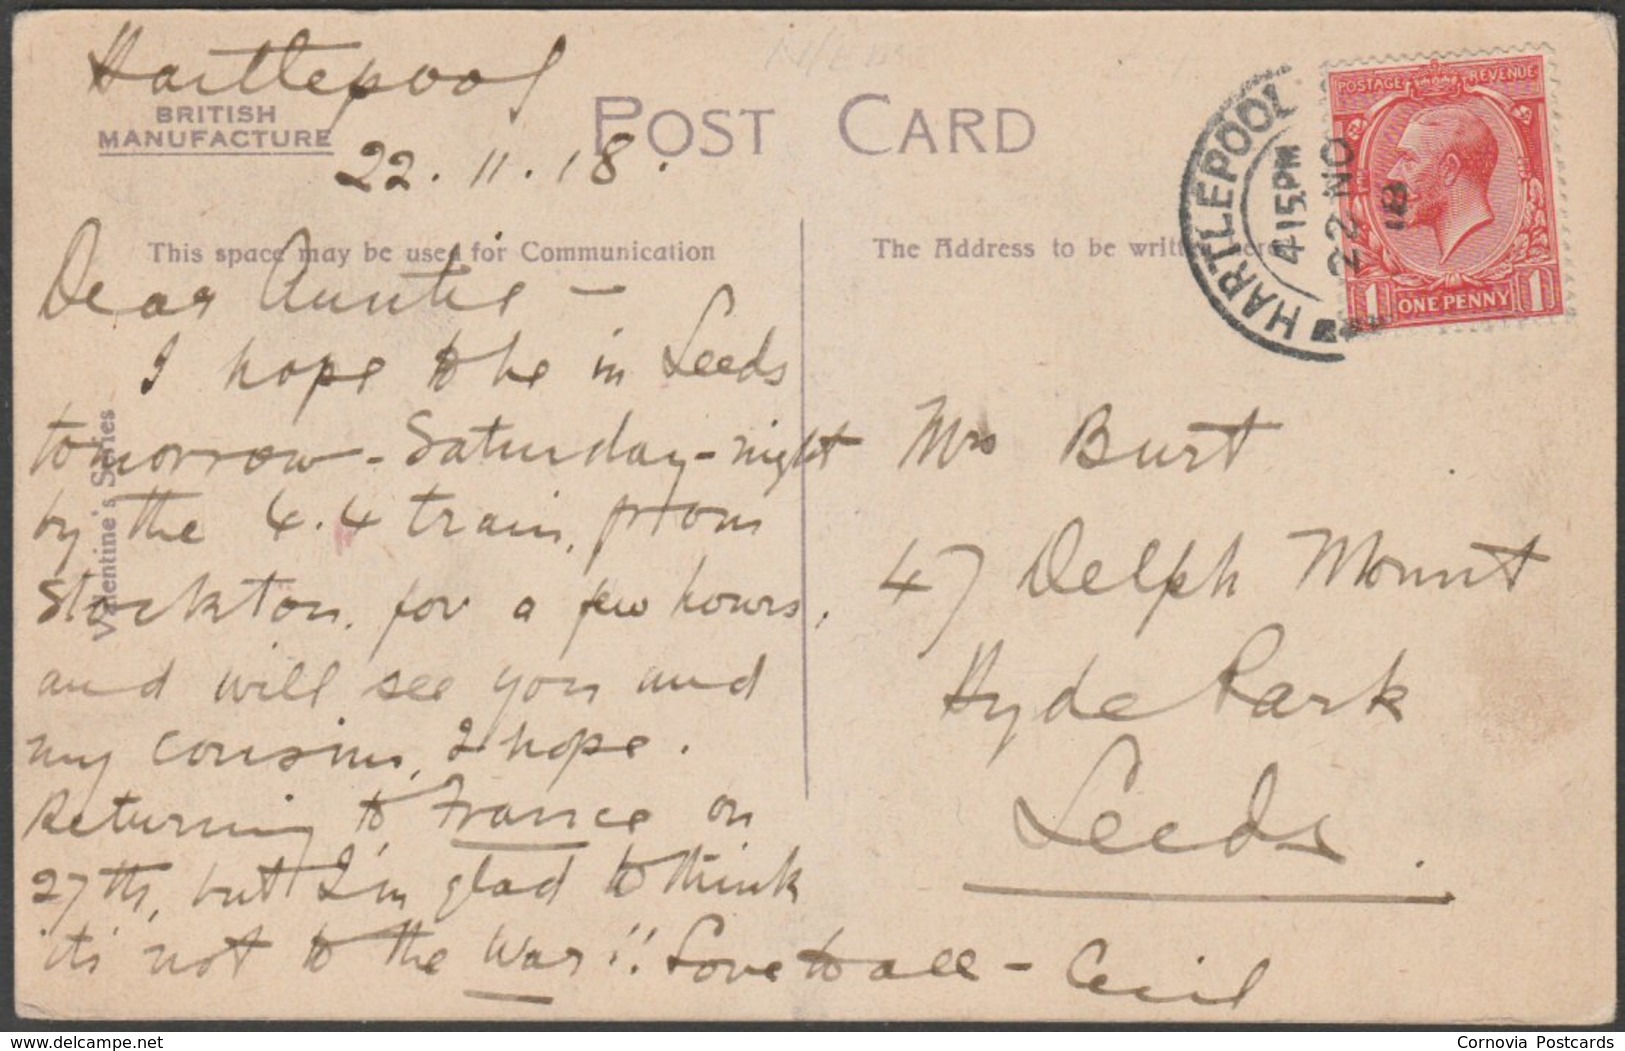 Hartlepool
BRITISH
MANUFACTURE
POST CARD
22.11.18.
This space may be used for Communication
The Address to be written here
HARTLEPOOL
4 15PM
22 NO
18
POSTAGE REVENUE
1 ONE PENNY 1
Valentine's Series
Dear Auntie –
I hope to be in Leeds
tomorrow - Saturday - night
by the 4.4 train, from
Stockton, for a few hours,
and will see you and
my cousins, I hope.
Returning to France on
27th, but I'm glad to think
it's not to the War!! Love to all – Cecil
Mrs Burt
47 Delph Mount
Hyde Park
Leeds.
delcampe.net
Cornovia Postcards